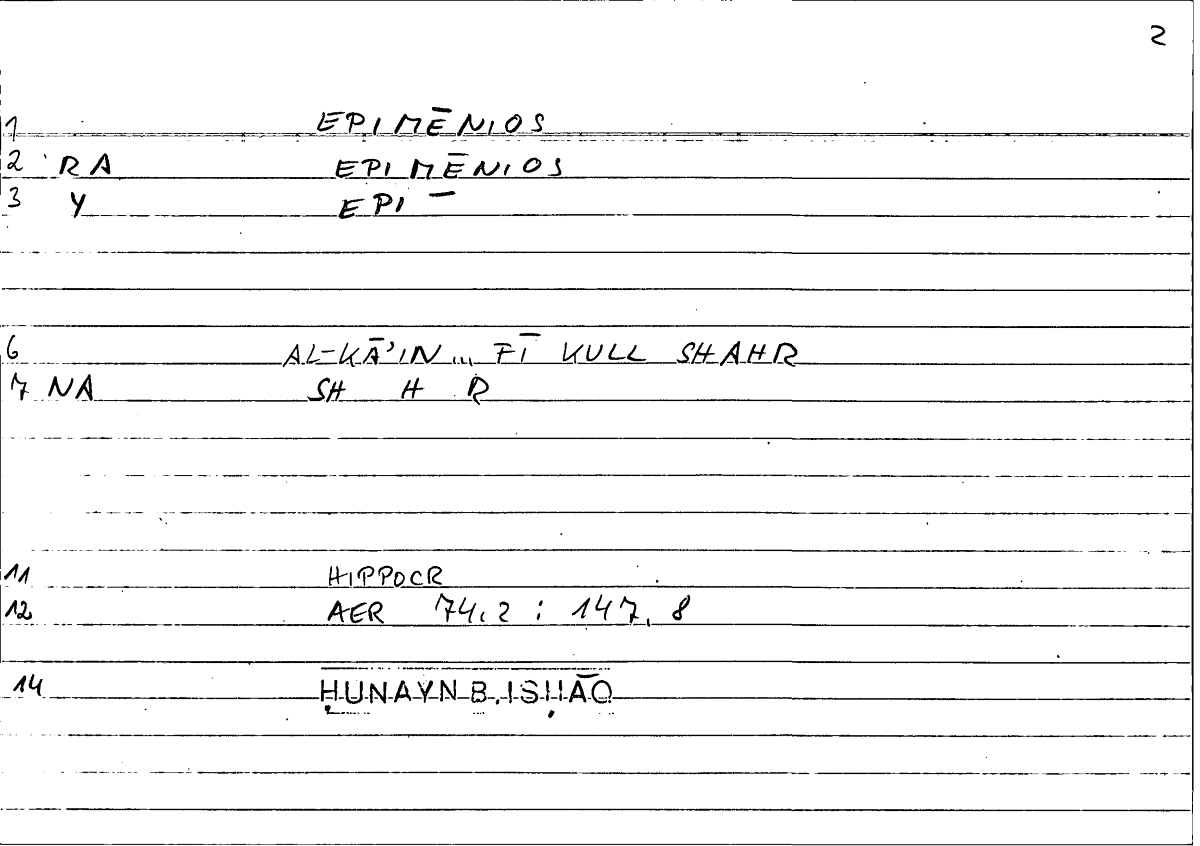 2
1 EPIMĒNIOS
2 RA EPIMĒNIOS
3 Y EPI —
6 AL-KĀ'IN... FĪ KULL SHAHR
7 NA SH H R
11 HIPPOCR
12 AER 74,2 : 147,8
14 ḤUNAYN B. ISḤĀQ